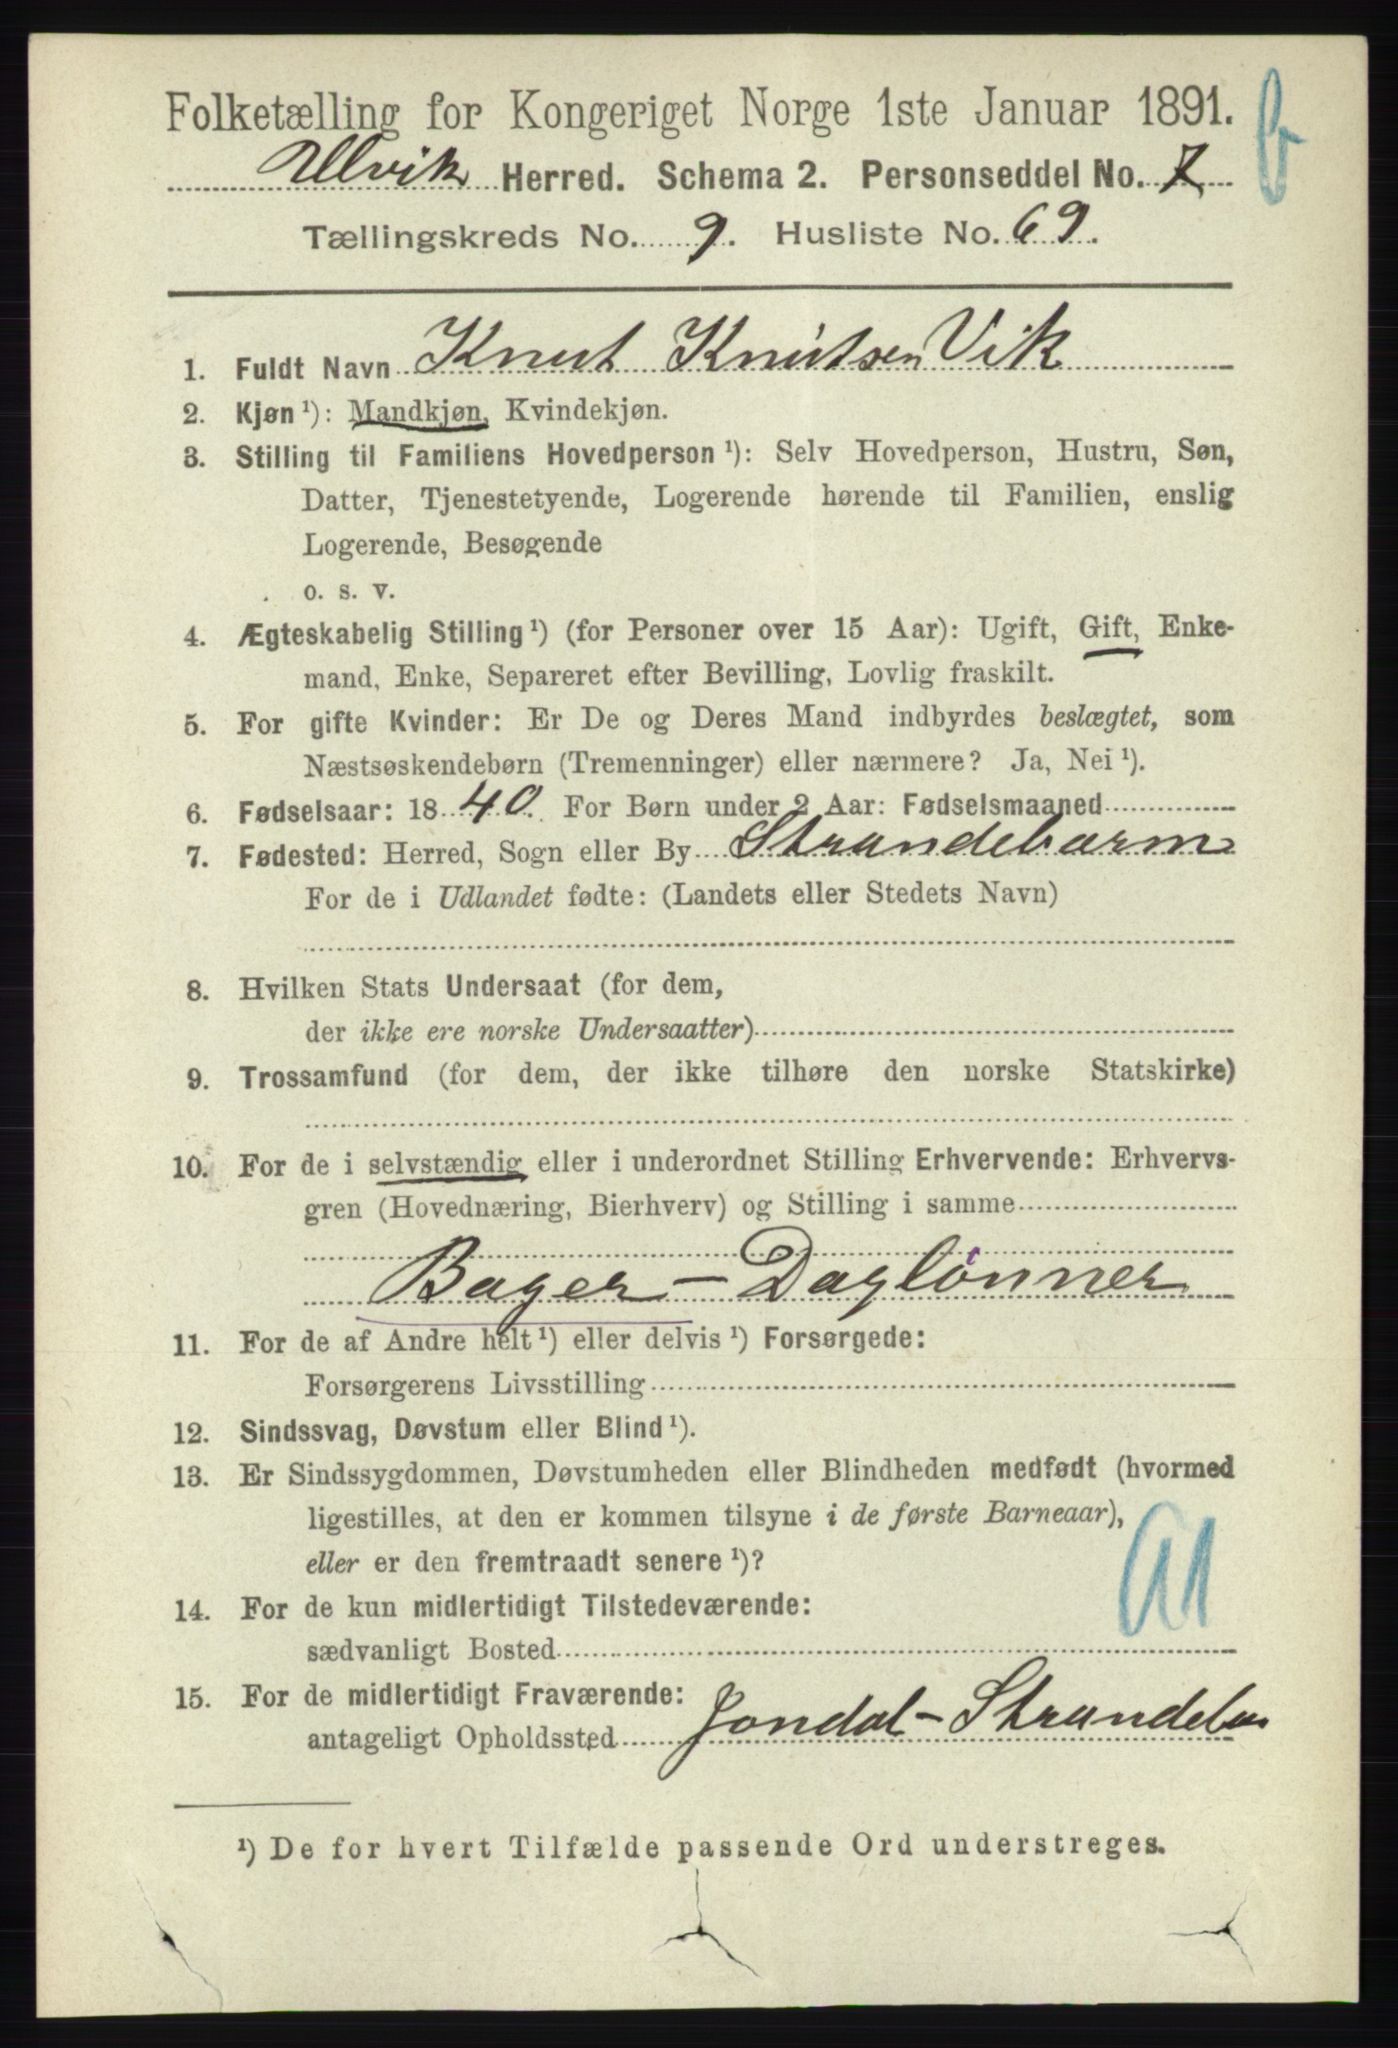 Folketælling for Kongeriget Norge 1ste Januar 1891.
b
Ulvik Herred. Schema 2. Personseddel No. 7
Tællingskreds No. 9. Husliste No. 69.
1. Fuldt Navn Knut Knutsen Vik
2. Kjøn ¹): Mandkjøn, Kvindekjøn.
3. Stilling til Familiens Hovedperson ¹): Selv Hovedperson, Hustru, Søn,
Datter, Tjenestetyende, Logerende hørende til Familien, enslig
Logerende, Besøgende
o. s. v.
4. Ægteskabelig Stilling ¹) (for Personer over 15 Aar): Ugift, Gift, Enke-
mand, Enke, Separeret efter Bevilling, Lovlig fraskilt.
5. For gifte Kvinder: Er De og Deres Mand indbyrdes beslægtet, som
Næstsøskendebørn (Tremenninger) eller nærmere? Ja, Nei ¹).
6. Fødselsaar: 1840. For Børn under 2 Aar: Fødselsmaaned
7. Fødested: Herred, Sogn eller By Strandebarm
For de i Udlandet fødte: (Landets eller Stedets Navn)
8. Hvilken Stats Undersaat (for dem,
der ikke ere norske Undersaatter)
9. Trossamfund (for dem, der ikke tilhøre den norske Statskirke)
10. For de i selvstændig eller i underordnet Stilling Erhvervende: Erhvervs-
gren (Hovednæring, Bierhverv) og Stilling i samme
Bager - Daglønner
11. For de af Andre helt ¹) eller delvis ¹) Forsørgede:
Forsørgerens Livsstilling
12. Sindssvag, Døvstum eller Blind ¹).
13. Er Sindssygdommen, Døvstumheden eller Blindheden medfødt (hvormed
ligestilles, at den er kommen tilsyne i de første Barneaar),
eller er den fremtraadt senere ¹)?
14. For de kun midlertidigt Tilstedeværende:
sædvanligt Bosted
15. For de midlertidigt Fraværende:
antageligt Opholdssted Jondal - Strandeba
¹) De for hvert Tilfælde passende Ord understreges.